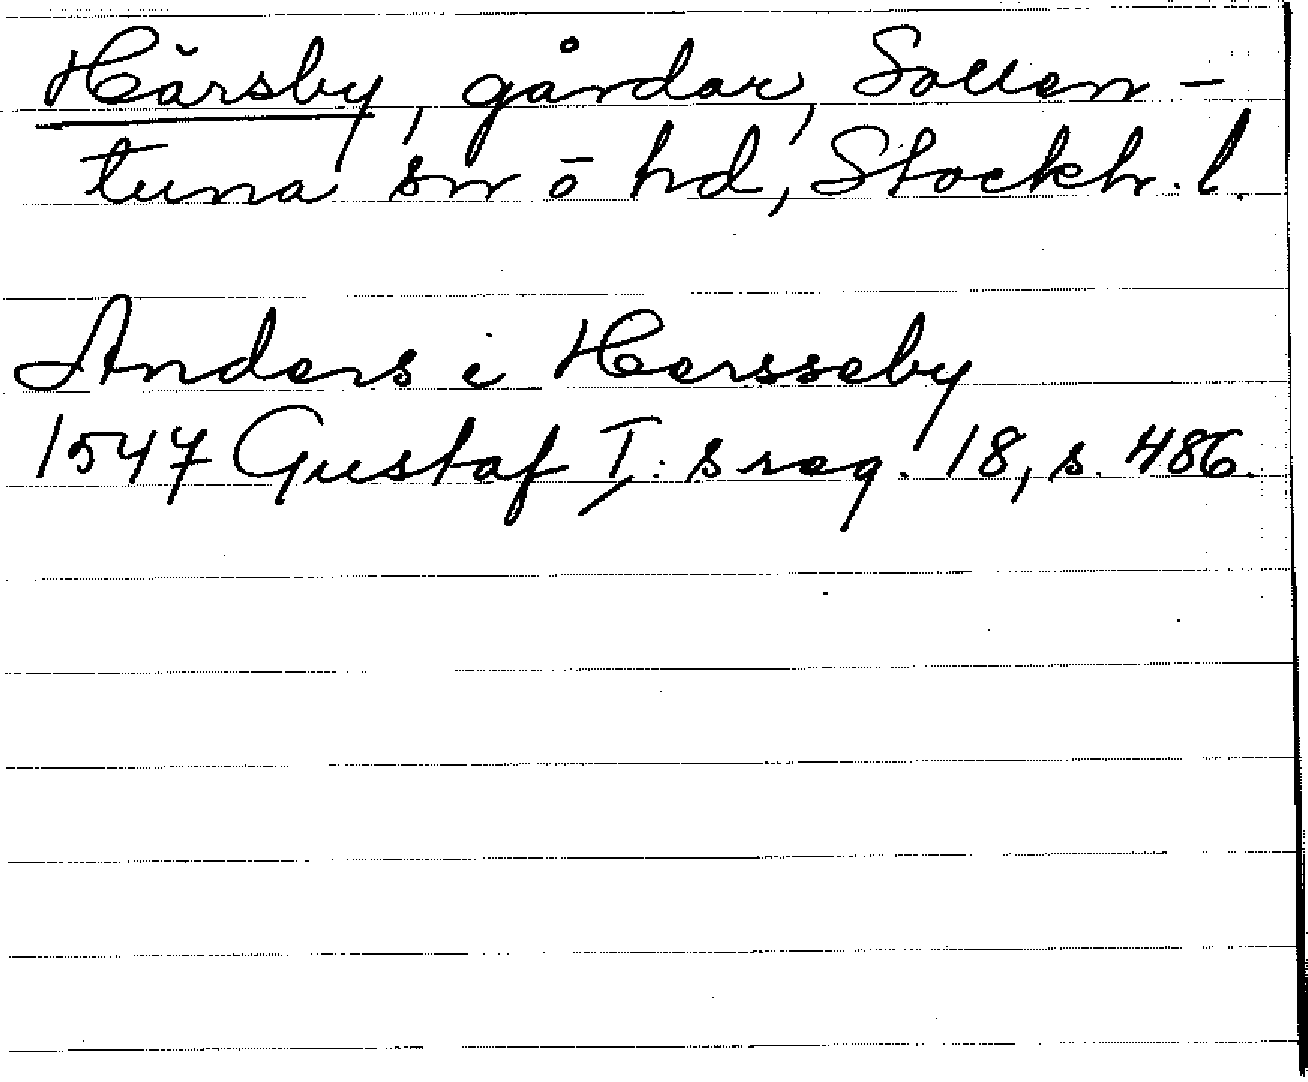 Härsby, gårdar, Sollen-
tuna sn ō hd, Stockh. l.
Anders i Hersseby
1547 Gustaf I:s reg. 18, s. 486.